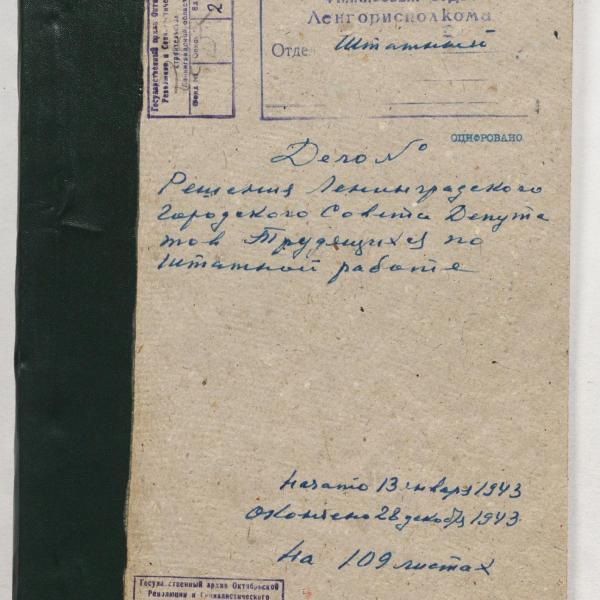 Государственный архив Октя
Революции и Социалистическ
строительства
Ленинградской области
Фонд №
2
Ленгорисполкома
Отдел Штатный
ОЦИФРОВАНО
Дело №
Решения Ленинградского
Городского Совета Депута
тов Трудящихся по
Штатной работе
Начато 13 января 1943
Окончено 28 декабря 1943
На 109 листах
Государственный архив Октябрьской
Революции и Социалистического